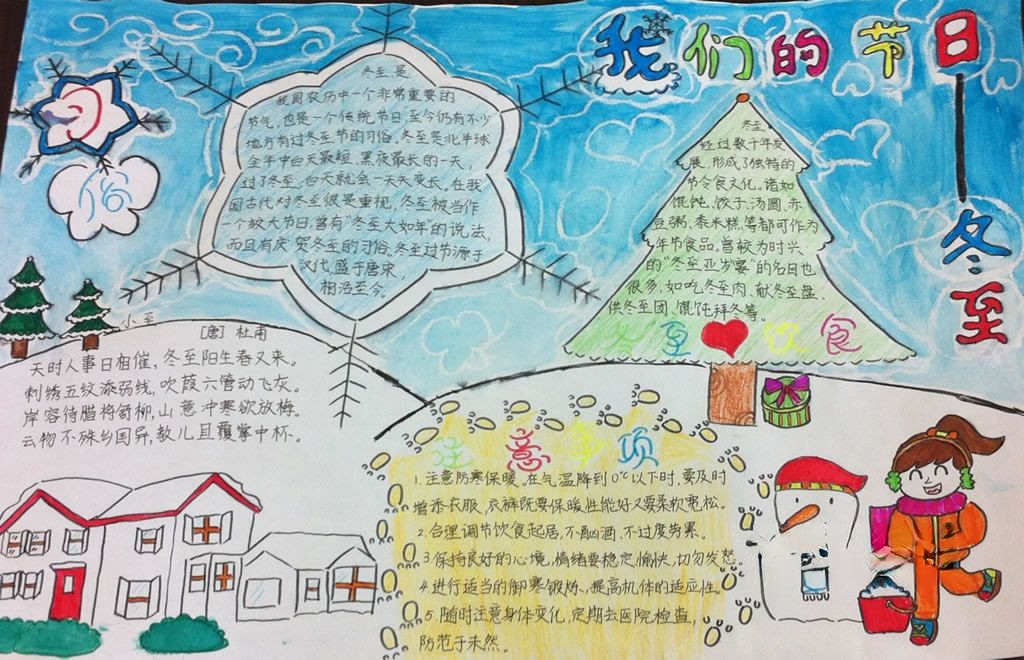 我们的节日——冬至
简
介
冬至是
我国农历中一个非常重要的
节气,也是一个传统节日,至今仍有不少
地方有过冬至节的习俗。冬至是北半球
全年中白天最短、黑夜最长的一天,
过了冬至,白天就会一天天变长。在我
国古代对冬至很是重视,冬至被当作
一个较大节日,曾有“冬至大如年”的说法,
而且有庆贺冬至的习俗。冬至过节源于
汉代,盛于唐宋,
相沿至今。
冬至
经过数千年发
展,形成了独特的
节令食文化。诸如
馄饨、饺子、汤圆、赤
豆粥、黍米糕等都可作为
年节食品。曾较为时兴
的“冬至亚岁宴”的名目也
很多,如吃冬至肉、献冬至盘、
供冬至团、馄饨拜冬等。
冬至饮食
小至
[唐] 杜甫
天时人事日相催,冬至阳生春又来。
刺绣五纹添弱线,吹葭六管动飞灰。
岸容待腊将舒柳,山意冲寒欲放梅。
云物不殊乡国异,教儿且覆掌中杯。
注意事项
1.注意防寒保暖,在气温降到0℃以下时,要及时
增添衣服,衣裤既要保暖性能好又要柔软宽松。
2.合理调节饮食起居,不酗酒、不过度劳累。
3.保持良好的心境,情绪要稳定愉快,切勿发怒
4.进行适当的御寒锻炼、提高机体的适应性。
5.随时注意身体变化,定期去医院检查,
防范于未然。